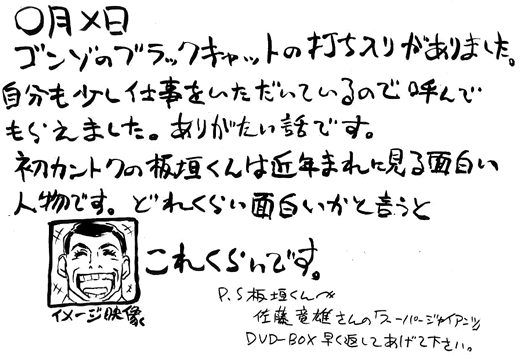 〇月×日
ゴンゾのブラックキャットの打ち入りがありました。
自分も少し仕事をいただいているので呼んで
もらえました。ありがたい話です。
初カントクの板垣くんは近年まれに見る面白い
人物です。どれくらい面白いかと言うと
これくらいです。
イメージ映像
P.S 板垣くんへ
佐藤竜雄さんの「スーパージャイアンツ」
DVD-BOX 早く返してあげて下さい。